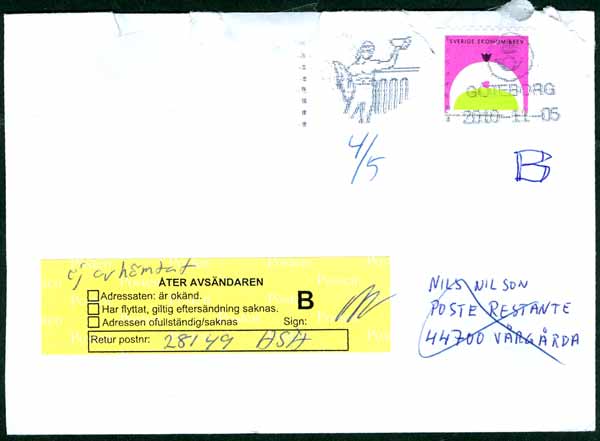 SVERIGE EKONOMIBREV
GÖTEBORG
2010-11-05
4/5
B
ej avhämtat
ÅTER AVSÄNDAREN
Adressaten: är okänd.
Har flyttat, giltig eftersändning saknas.
Adressen ofullständig/saknas
B
Sign:
Retur postnr: 28149 ASA
NILS NILSON
POSTE RESTANTE
44700 VÅRGÅRDA